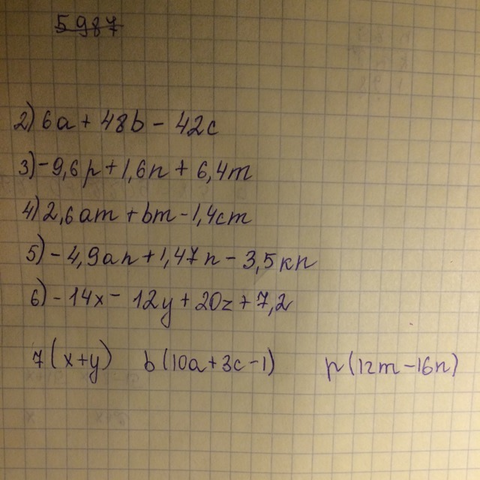 5987
2) 6a + 48b - 42c
3) -9,6p + 1,6n + 6,4m
4) 2,6am + bm - 1,4cm
5) - 4,9an + 1,47n - 3,5кn
6) - 14x - 12y + 20z + 7,2
7(x+y) b(10a+3c-1) p(12m-16n)